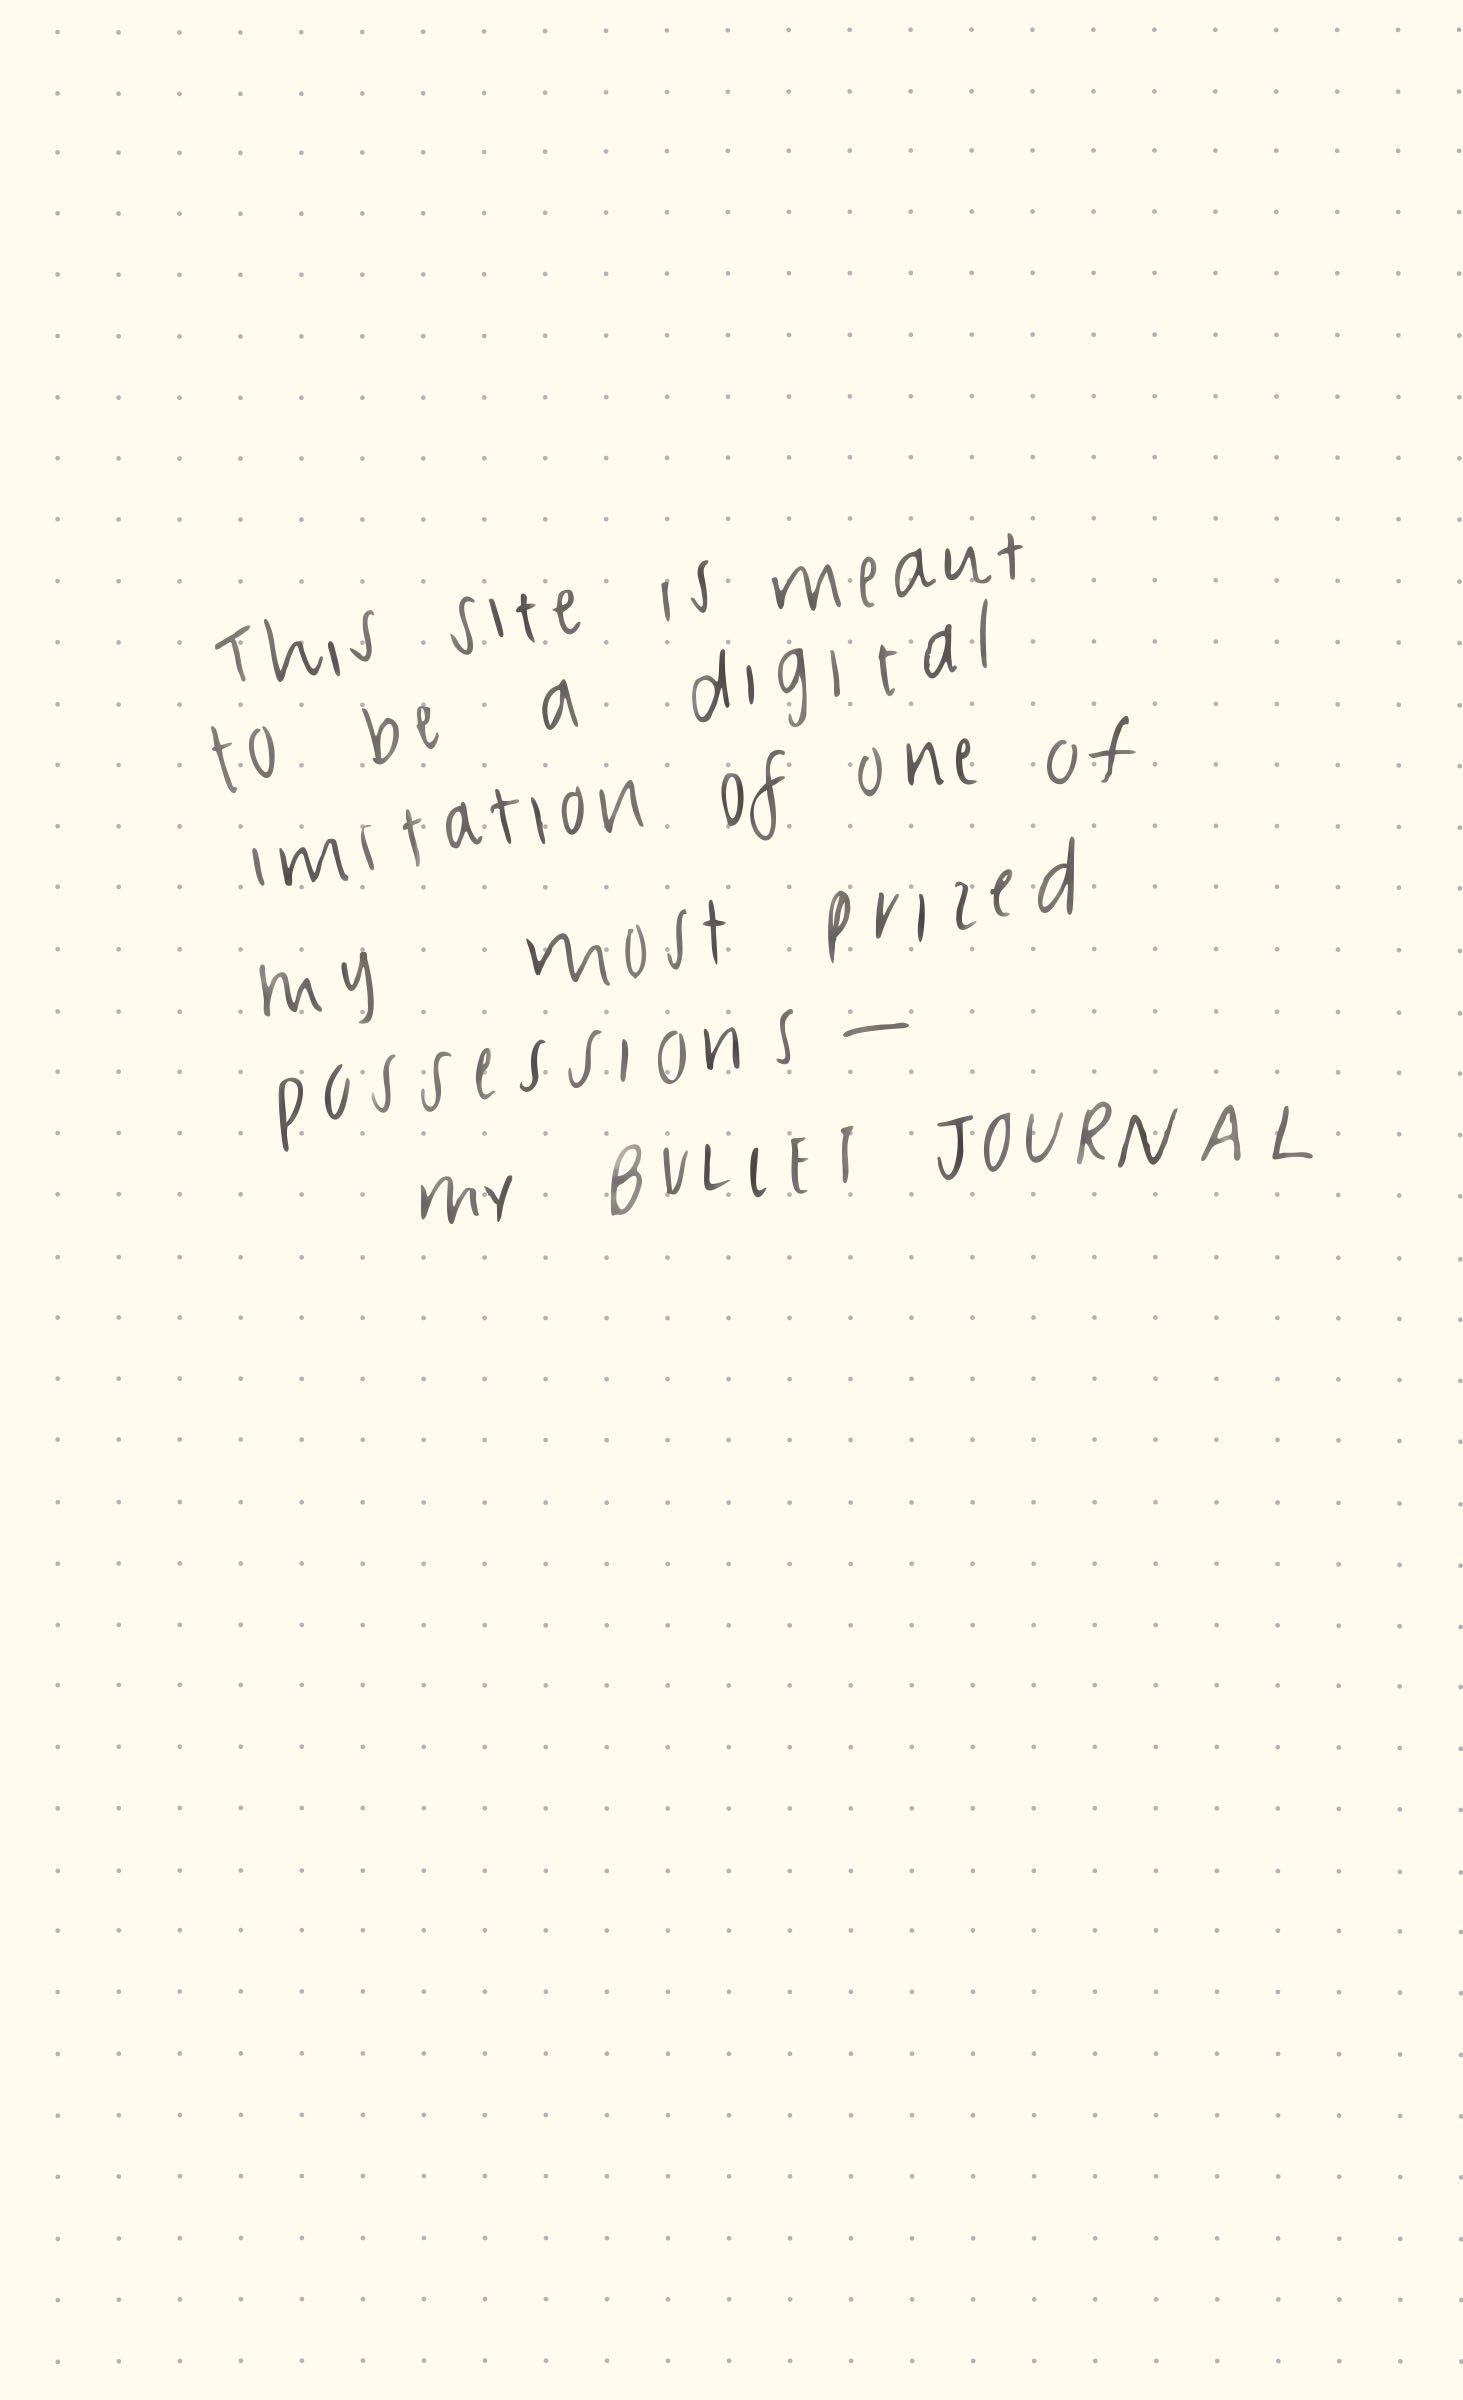 This site is meant
to be a digital
imitation of one of
my most prized
possessions —
my BULLET JOURNAL